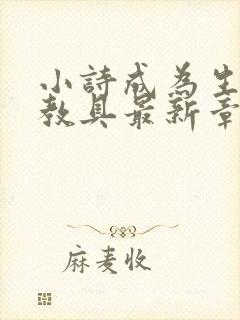 小詩成為生
教具最新章
麻麦收